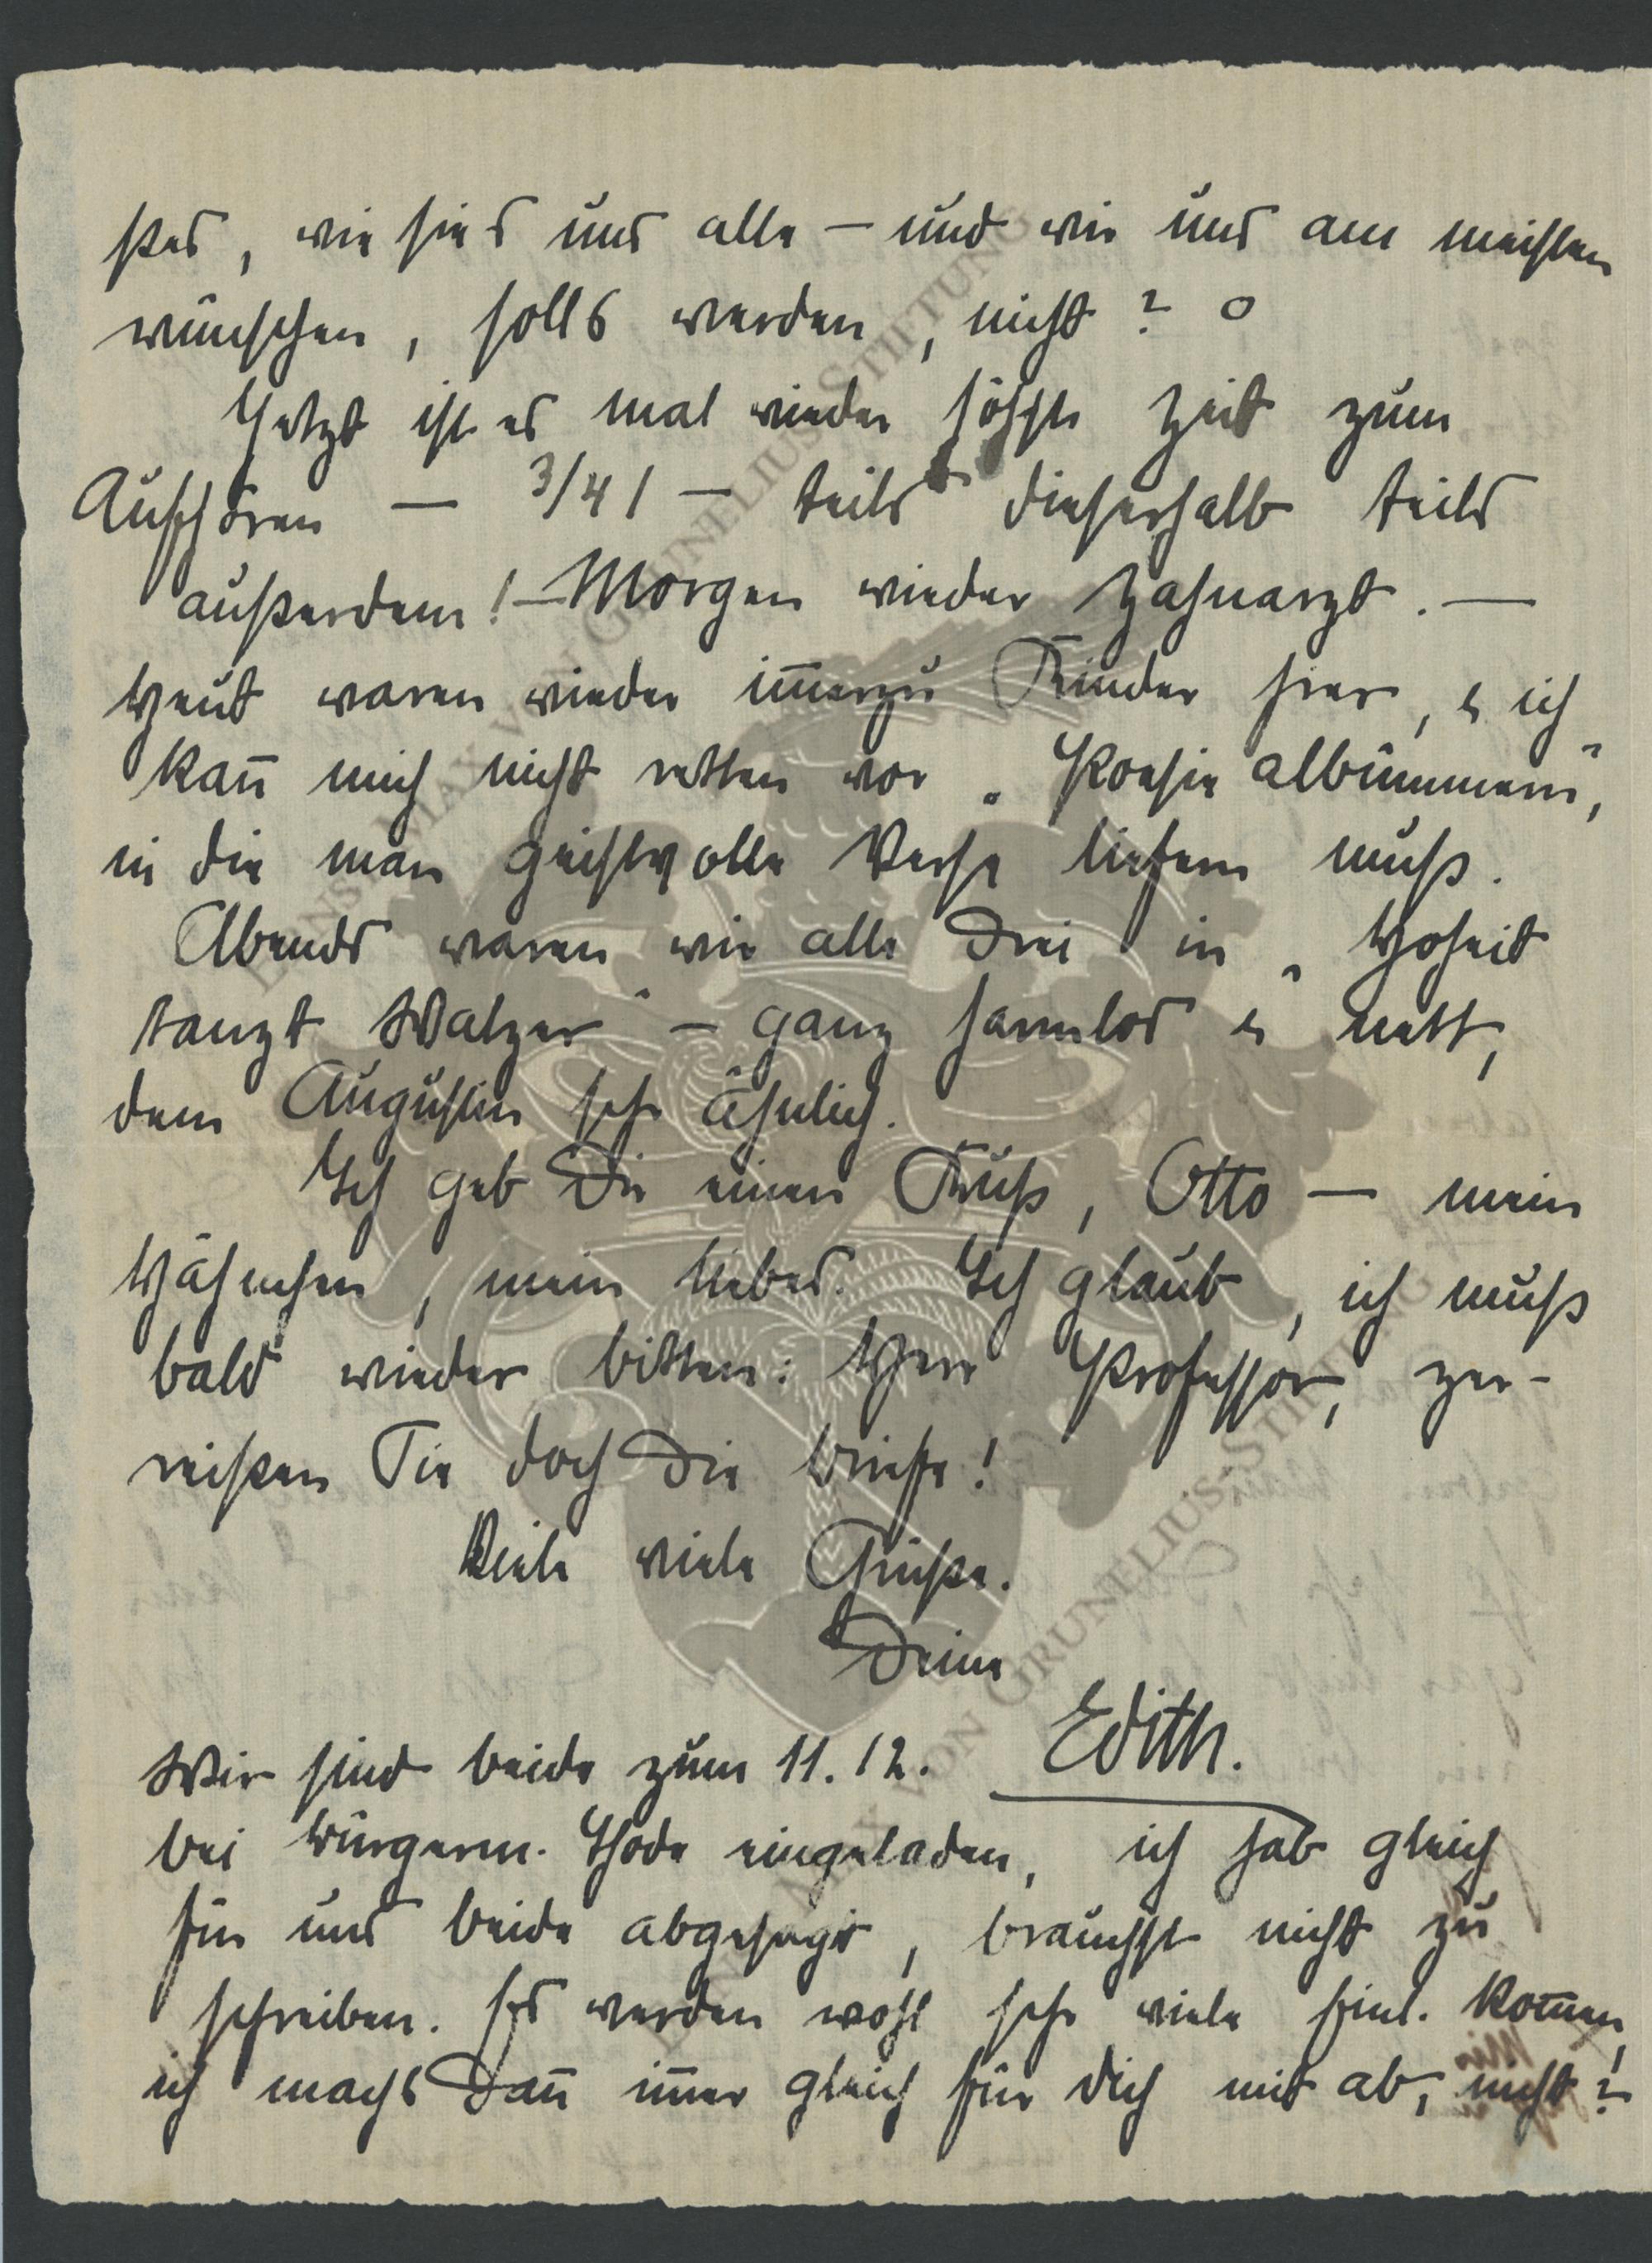 ßes, wie sie's uns alle – und wir uns am meisten
wünschen, solls werden, nicht? o
Jetzt ist es mal wieder höchste Zeit zum
Aufhören — 3/4 1 — teils dieserhalb teils
außerdem! – Morgen wieder Zahnarzt. —
Heut waren wieder im̅erzu Kinder hier, & ich
kan̅ mich nicht retten vor „Poesie albümmern",
in die man geistvolle Verse liefern muß.
Abends waren wir alle drei in „Hoheit
tanzt Walzer" – ganz harmlos & nett,
dem Augustin sehr ähnlich.
Ich geb Dir einen Kuß, Otto — mein
Hähnchen, mein liebes. Ich glaub, ich muß
bald wieder bitten: Herr Professor, zer-
reißen Sie doch die Briefe!
Viele viele Grüße.
Deine
Edith.
Wir sind beide zum 11. 12.
bei Bürgerm. Thode eingeladen, ich hab gleich
für uns beide abgesagt, brauchst nicht zu
schreiben. Es werden wohl sehr viele Einl. kom̅en,
ich machs dan̅ im̅er gleich für Dich mit ab, nicht?
HANS MAX VON GRUNELIUS-STIFTUNG
MAX VON GRUNELIUS-STIFTUNG